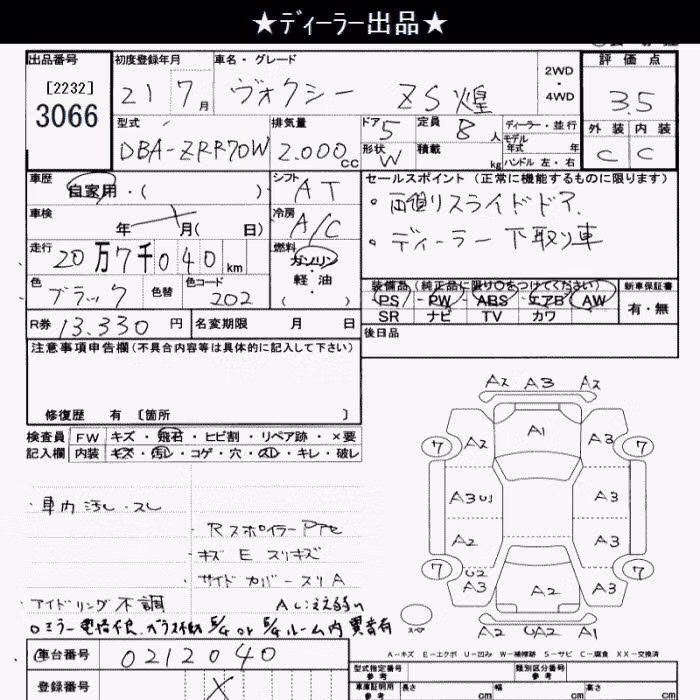 ★ディーラー出品★
出品番号
[2232]
3066
初度登録年月
21 7月
車名・グレード
ヴォクシー ZS煌
2WD
・
4WD
評価点
3.5
外装 内装
C C
型式
DBA-ZRR70W
排気量
2.000cc
ドア 5
形状 W
定員 8人
積載 kg
ディーラー・並行
モデル
年式 年
ハンドル 左・右
車歴
自家用・( )
シフト
AT
セールスポイント(正常に機能するものに限ります)
・両側リスライドドア.
・ディーラー下取り車
車検
年 月( 日)
冷房
A/C
走行
20万7千040km
燃料
ガソリン
軽油
( )
色
ブラック
色替
色コード
202
装備品(純正品に限り○をつけてください)
PS PW ABS エアB AW
SR ナビ TV カワ
新車保証書
有・無
R券 13.330円
名変期限 月 日
後日品
注意事項申告欄(不具合内容等は具体的に記入して下さい)
修復歴 有 〔箇所 〕
検査員 FW キズ・飛石・ヒビ割・リペア跡・×要
記入欄 内装 キズ・汚レ・コゲ・穴・スレ・キレ・破レ
・車内汚レ・スレ
・Rスポイラー
・キズ E スリキズ
・サイドカバースリA
アイドリング不調
A2 A3 A2
7 A2 A1 A3 7
A3 U1 A3
A2 A3
7 U2 A3 A2 A3 7
スペ
A2 UA2 A1
A-キズ E-エクボ U-凹み W-補修跡 S-サビ C-腐食 XX-交換済
車台番号
0212040
登録番号
型式指定番号
参考
類別区分番号
参考
車庫証明用
参考
長さ cm
幅 cm
高さ cm